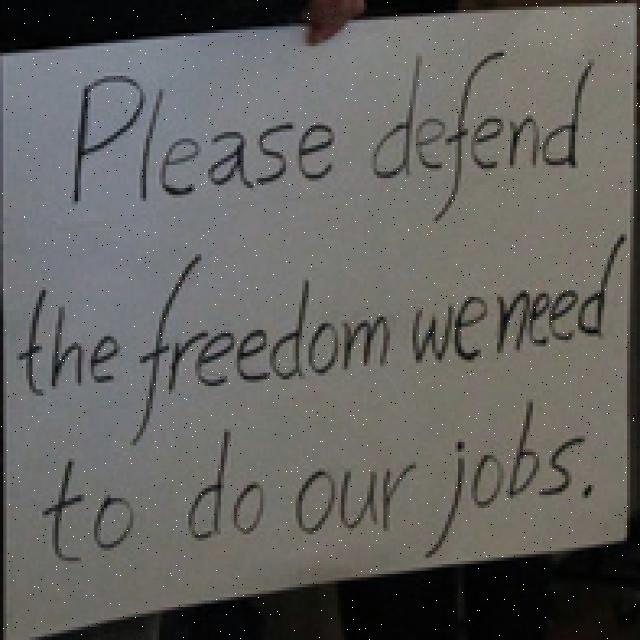 Please defend
the freedom we need
to do our jobs.